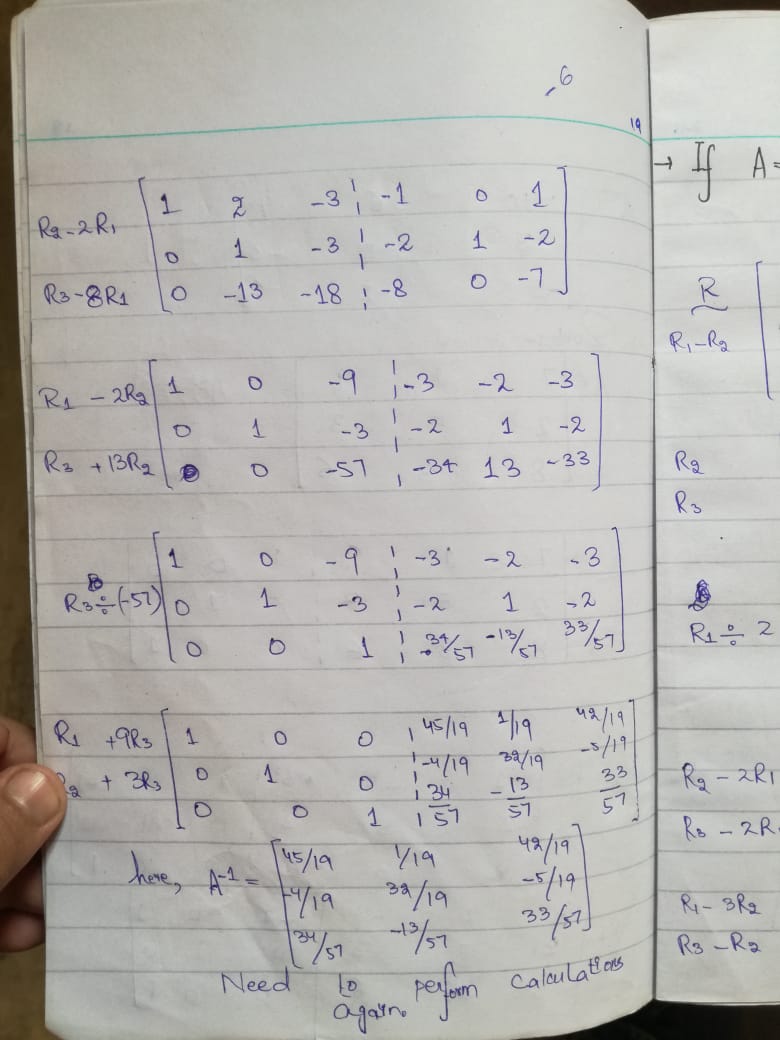 6
19
R2-2R1 1 2 -3 -1 0 1
0 1 -3 -2 1 -2
R3-8R1 0 -13 -18 -8 0 -7
R1 - 2R2 1 0 -9 -3 -2 -3
0 1 -3 -2 1 -2
R3 +13R2 0 0 -57 -34 13 -33
1 0 -9 -3 -2 -3
R3÷(-57) 0 1 -3 -2 1 -2
0 0 1 34/57 -13/57 33/57
R1 +9R3 1 0 0 45/19 1/19 42/19
R2 + 3R3 0 1 0 -4/19 32/19 -5/19
0 0 1 34/57 -13/57 33/57
here, A-1 = 45/19 1/19 42/19
-4/19 32/19 -5/19
34/57 -13/57 33/57
Need to perform calculations
Again.
→ If A=
R
R1-R2
R2
R3
R1÷2
R2 - 2R1
R3 - 2R
R1 - 3R2
R3 - R2